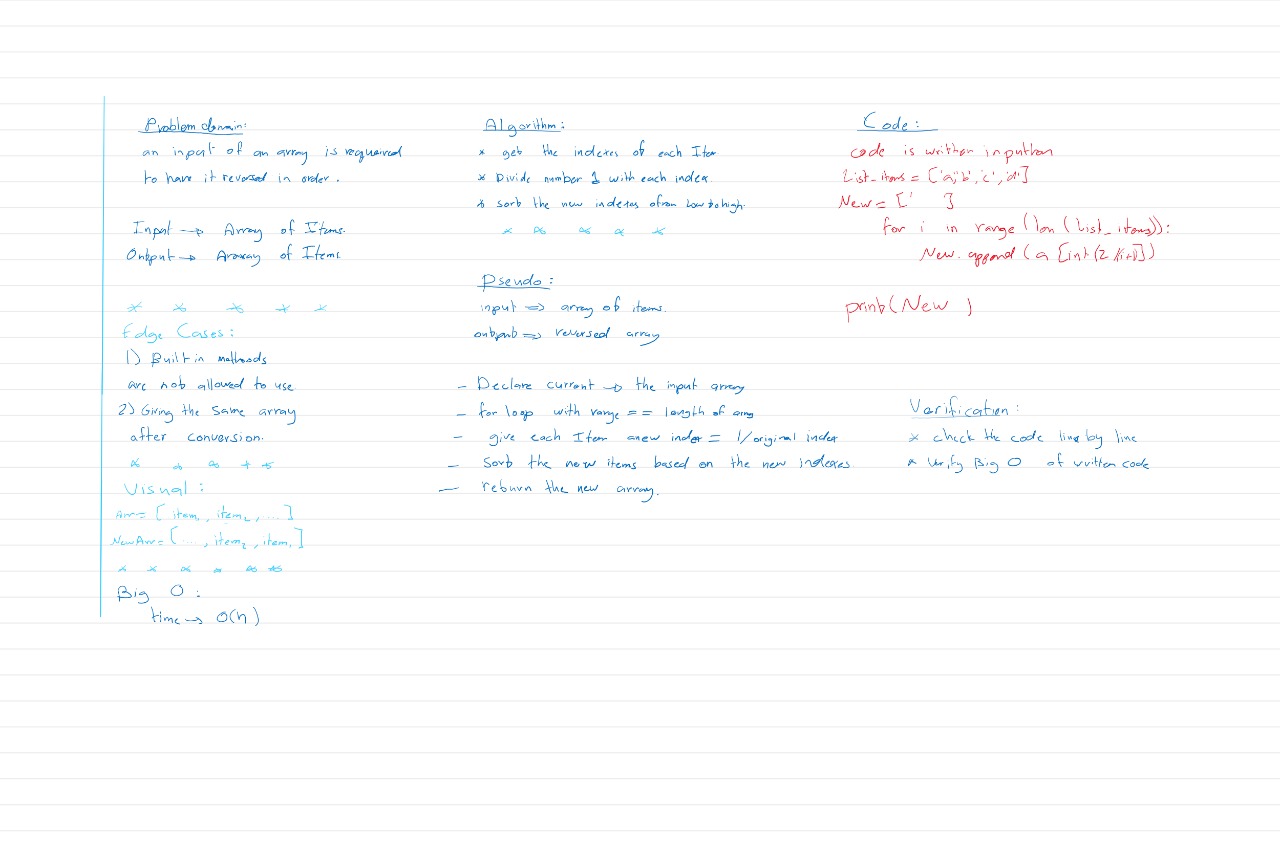 Problem domain:
an input of an array is requaired
to have it reversed in order.
Input → Array of Items.
Output → Array of Items
Edge Cases:
1) Built in mathods
are not allowed to use
2) Giving the same array
after conversion.
Visual:
Arr = [ item1, item2, ... ]
NewArr = [ ..., item2, item1 ]
Big O:
time → O(n)
Algorithm:
* get the indexes of each Item
* Divide number 1 with each index.
* sort the new indexes from Low to high.
Pseudo:
input => array of items.
output => reversed array
- Declare current → the input array
- for loop with range == length of array
- give each Item anew index = 1/original index
- Sort the new items based on the new indexes
- return the new array.
Code:
code is written in python
List_items = ['a','b','c','d']
New = [' ]
for i in range (len (List_items)):
New.append (a [int(2 /(i+1)])
print(New )
Verification:
* check the code line by line
* Verify Big O of written code